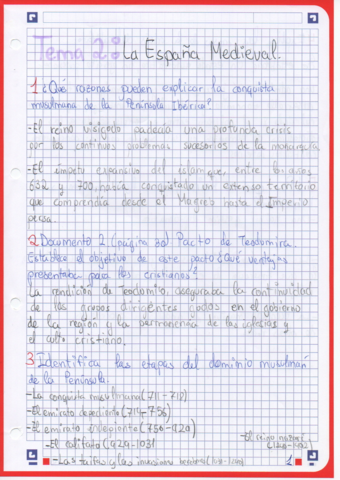 Tema 2: La España Medieval.
1 ¿Qué razones pueden explicar la conquista
musulmana de la Península Ibérica?
-El reino visigodo padecía una profunda crisis
por los continuos problemas sucesorios de la monarquía
-El ímpetu expansivo del islam que, entre los años
632 y 700 había conquistado un extenso territorio
que comprendía desde el Magreb hasta el Imperio
persa.
2 Documento 2 (página 30) Pacto de Teodomiro.
Establece el objetivo de este pacto ¿Qué ventajas
presentaba para los cristianos?
La rendición de Teodomiro, aseguraba la continuidad
de los grupos dirigentes godos en el gobierno
de la región y la permanencia de las iglesias y
el culto cristiano.
3 Identifica las etapas del dominio musulmán
de la Península.
-La conquista musulmana (711-
-El emirato dependiente (714-756)
-El emirato independiente (756-929)
-El califato (929-1031
-Las taifas y las invasiones
-El reino nazarí
1